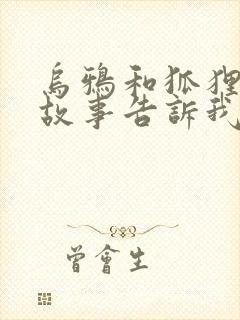 烏鴉和狐狸
故事告訴我
曾會生